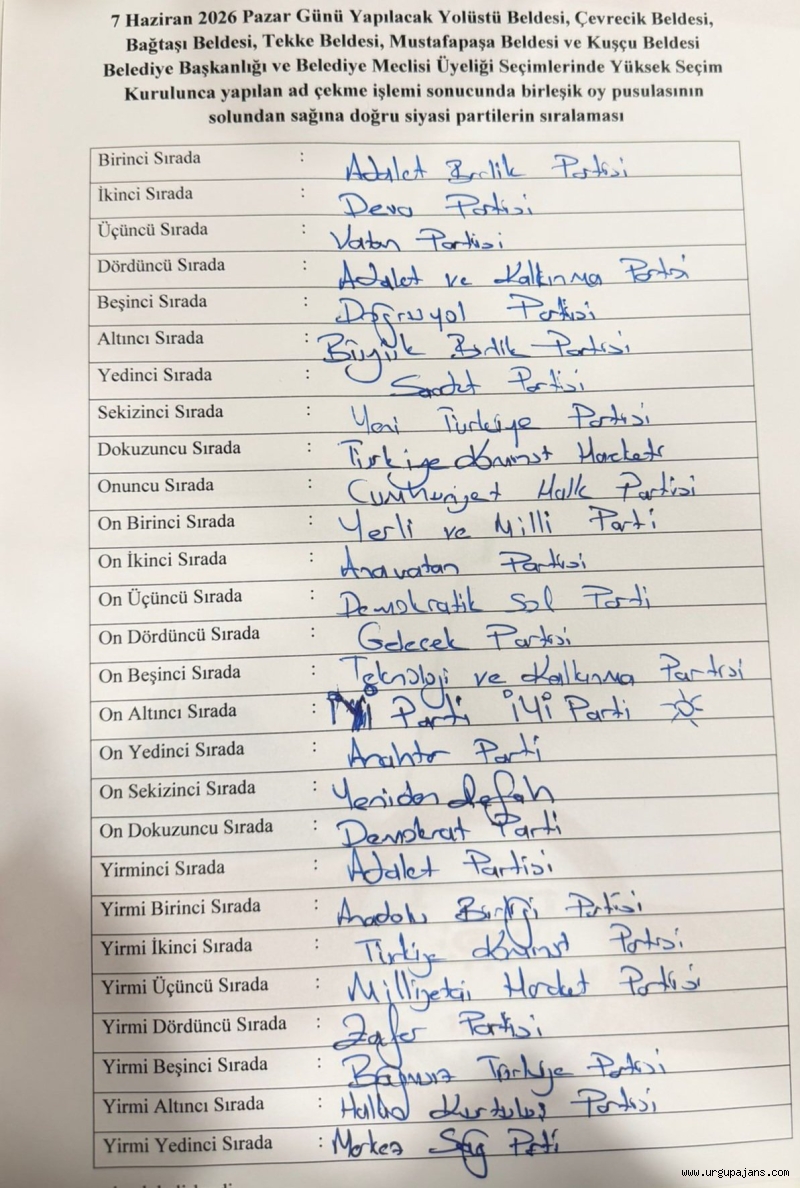 7 Haziran 2026 Pazar Günü Yapılacak Yolüstü Beldesi, Çevrecik Beldesi,
Bağtaşı Beldesi, Tekke Beldesi, Mustafapaşa Beldesi ve Kuşçu Beldesi
Belediye Başkanlığı ve Belediye Meclisi Üyeliği Seçimlerinde Yüksek Seçim
Kurulunca yapılan ad çekme işlemi sonucunda birleşik oy pusulasının
solundan sağına doğru siyasi partilerin sıralaması
Birinci Sırada : Adalet Birlik Partisi
İkinci Sırada : Deva Partisi
Üçüncü Sırada : Vatan Partisi
Dördüncü Sırada : Adalet ve Kalkınma Partisi
Beşinci Sırada : Doğruyol Partisi
Altıncı Sırada : Büyük Birlik Partisi
Yedinci Sırada : Saadet Partisi
Sekizinci Sırada : Yeni Türkiye Partisi
Dokuzuncu Sırada : Türkiye Komünist Hareketi
Onuncu Sırada : Cumhuriyet Halk Partisi
On Birinci Sırada : Yerli ve Milli Parti
On İkinci Sırada : Anavatan Partisi
On Üçüncü Sırada : Demokratik Sol Parti
On Dördüncü Sırada : Gelecek Partisi
On Beşinci Sırada : Teknoloji ve Kalkınma Partisi
On Altıncı Sırada : İYİ Parti İYİ Parti
On Yedinci Sırada : Anahtar Parti
On Sekizinci Sırada : Yeniden Refah
On Dokuzuncu Sırada : Demokrat Parti
Yirminci Sırada : Adalet Partisi
Yirmi Birinci Sırada : Anadolu Birliği Partisi
Yirmi İkinci Sırada : Türkiye Komünist Partisi
Yirmi Üçüncü Sırada : Milliyetçi Hareket Partisi
Yirmi Dördüncü Sırada : Zafer Partisi
Yirmi Beşinci Sırada : Bağımsız Türkiye Partisi
Yirmi Altıncı Sırada : Halkın Kurtuluş Partisi
Yirmi Yedinci Sırada : Merkez Sağ Parti
www.urgupajans.com